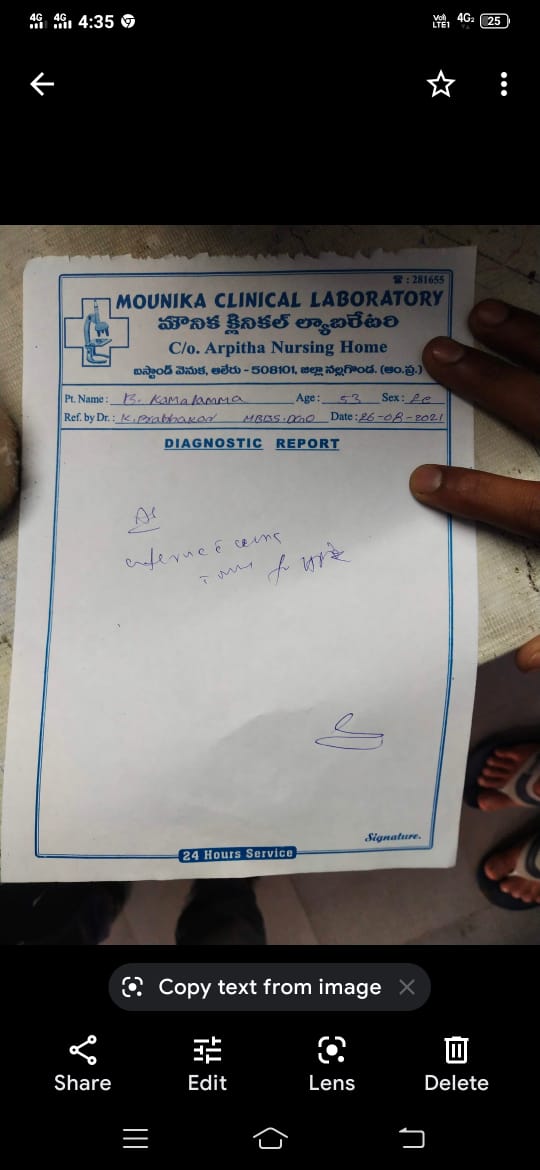 4G 4G 4:35 Vo)) LTE1 4G2 25
☎ : 281655
MOUNIKA CLINICAL LABORATORY
మౌనిక క్లినికల్ ల్యాబరేటరి
C/o. Arpitha Nursing Home
బస్టాండ్ వెనుక, ఆలేరు - 508101, జిల్లా నల్లగొండ. (ఆం.ప్ర.)
Pt. Name : B. Kamalamma Age : 53 Sex :
Ref. by Dr. : K. Prabhakar MBBS. DGO Date : 26-08-2021
DIAGNOSTIC REPORT
Signature.
24 Hours Service
Copy text from image
Share Edit Lens Delete